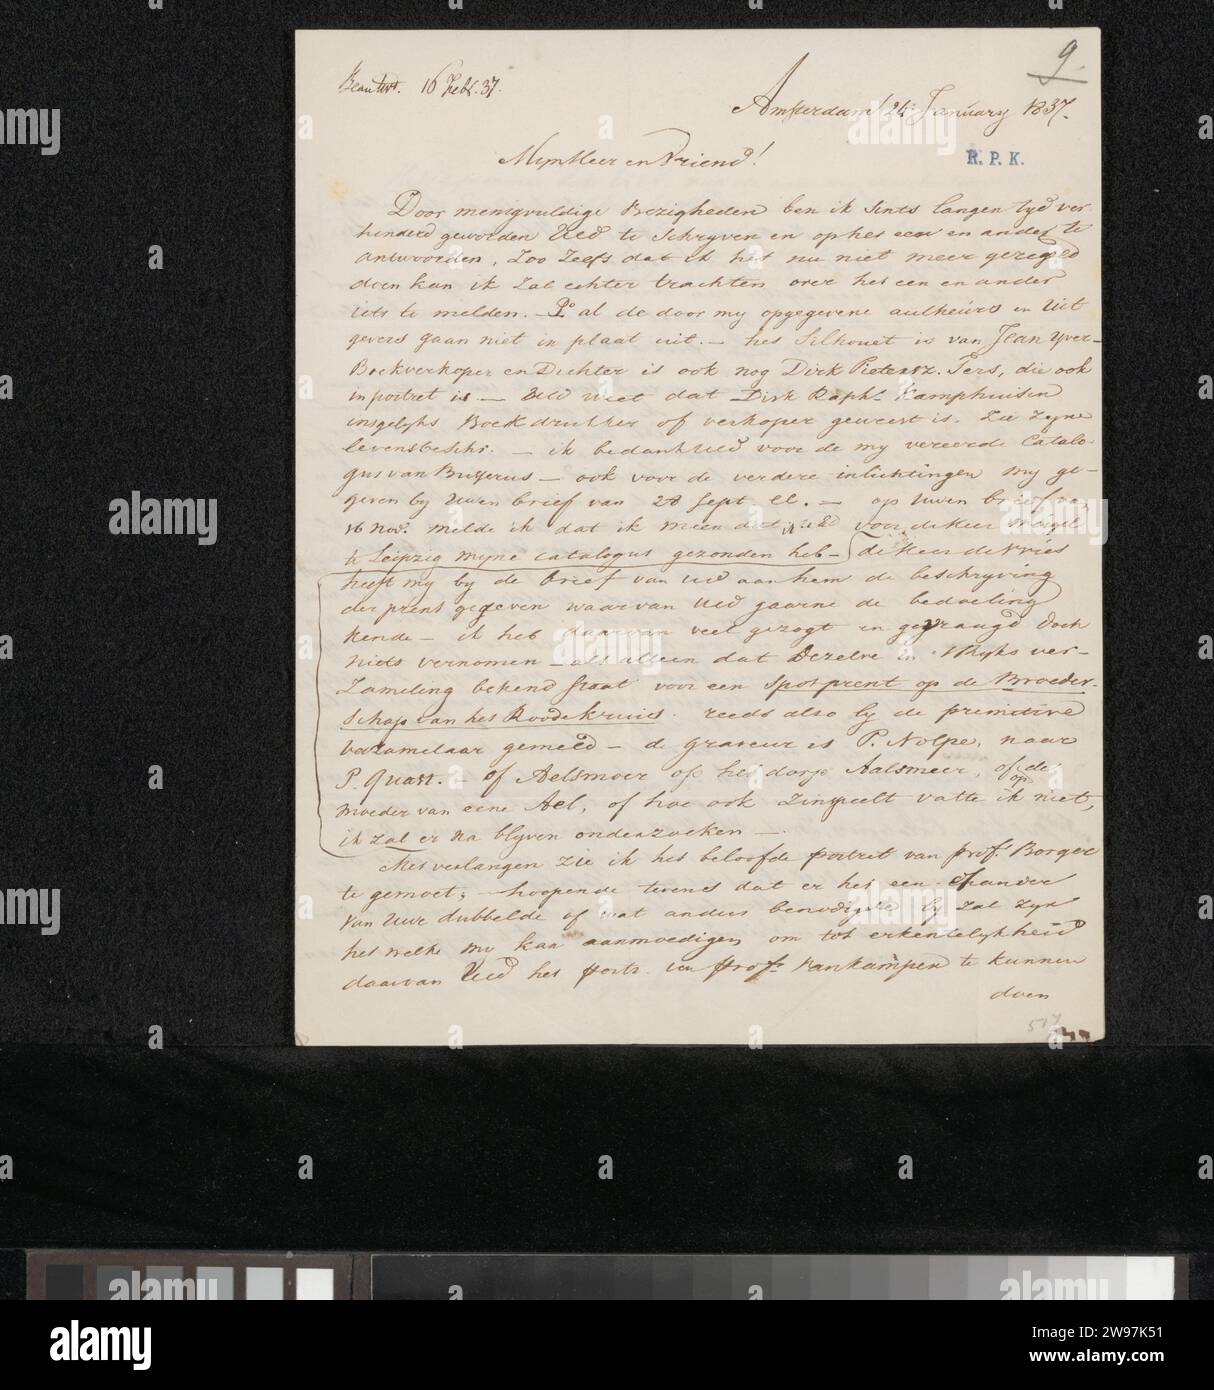 9
Beantw. 16 Febr. 37.
Amsterdam 24 January 1837.
Mijn Heer en Vriend!
R. P. K.
Door menigvuldige bezigheden ben ik sints langen tyd ver
hinderd geworden UEd te schryven en op het een en ander te
antwoorden, Zoo Zelfs dat ik het nu niet meer geregeld
doen kan ik Zal echter trachten over het een en ander
iets te melden. — al de door my opgegevene autheurs en Uit
gevers gaan niet in plaat uit. — het Silhouet is van Jean Yver
Boekverkoper en Dichter is ook nog Dirk Pietersz. Pers, die ook
in portret is — UEd weet dat Dirk Raphs. Kamphuisen
insgelyks Boekdrukker of verkoper geweest is. Zie Zyne
levensbeschr. — ik bedank UEd voor de my vereerde Catalo-
gus van Buserus — ook voor de verdere inlichtingen my ge-
geven by Uwen brief van 28 Sept ll. — op Uwen brief van
16 Nov. melde ik dat ik meen dat ik UEd voor de Heer Weigel
te Leipzig myne catalogus gezonden heb — de Heer de Vries
heeft my by de brief van UEd aan hem de beschryving
der prent gegeven waarvan UEd gaarne de bedoeling
kende — ik heb daarvan veel gezogt en gevraagd doch
niets vernomen — als alleen dat dezelve in 's Ryks ver-
Zameling bekend staat voor een spotprent op de Broeder-
schap van het Roode kruis. reeds also by de primitive
verzamelaar gemeld — de graveur is P. Nolpe, naar
P. Quast. — of Aelsmoer op het dorp Aalsmeer, of de
op
moeder van eene Ael, of hoe ook Zinspeelt vatte ik niet,
ik Zal er na blyven onderzoeken —.
Met verlangen Zie ik het beloofde portret van Prof. Borger
te gemoet; — hoopende tevens dat er het een of ander
van Uwe dubbelde of wat anders benodigde by Zal Zyn
het welke my kan aanmoedigen om tot erkentelykheid
daarvan UEd het portr. van Prof. van Kampen te kunnen
doen
517
alamy
Image ID: 2W97K51
www.alamy.com